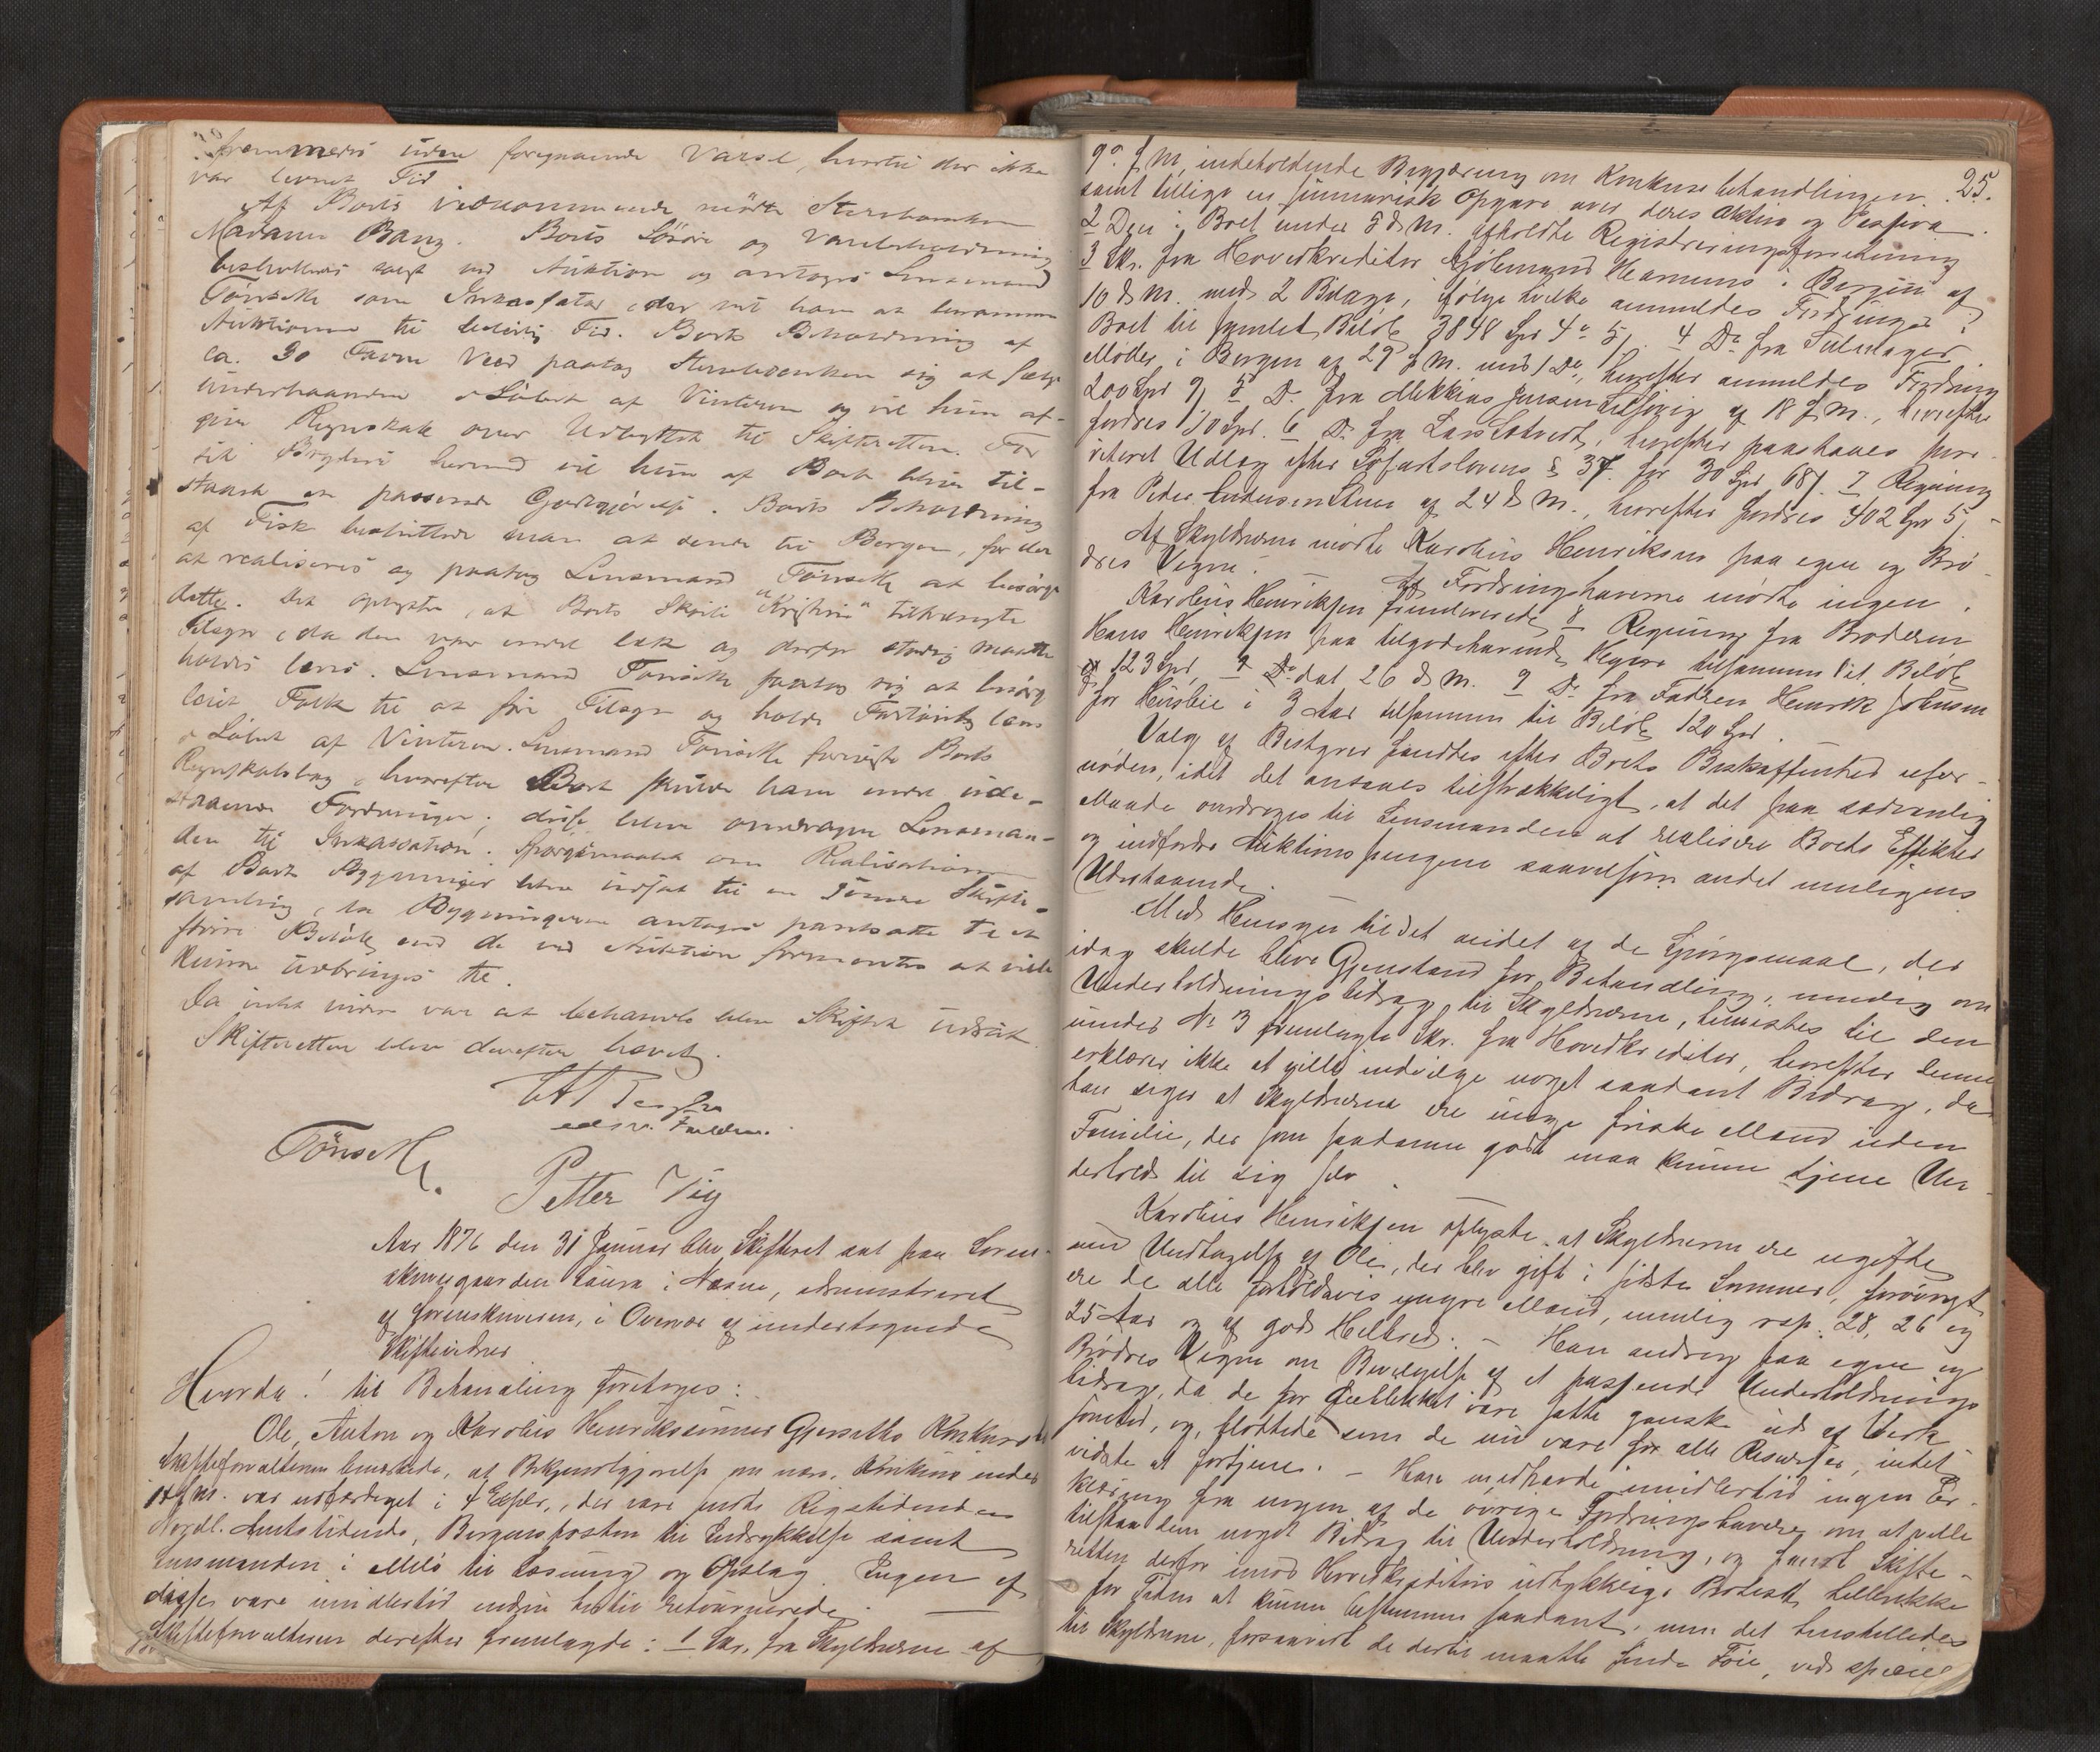 fremmedes uden foregaaende Varsel, hvortil der ikke
var levnet Tid
Af Boets vedkommende mødte Sterboenken
Madame Bang. Boets Løsøre og Varebeholdning
besluttedes solgt ved Auktion og antoges Lensmand
Tønseth som Inkassator, der vil have at beramme
Auktionen til beleilig Tid. Boets Beholdning af
ca. 30 Favne Veed paatog Sterboenken sig at sælge
underhaanden i Løbet af Vinteren og vil hun af-
give Regnskab over Udbyttet til Skifteretten. For
sit Bryderi hermed vil hun af Boet blive til-
staaet en passende Godtgjørelse. Boets Beholdning
af Fisk besluttede man at sende til Bergen, for der
at realiseres og paatog Lensmand Tønseth at besørge
dette. Det oplystes, at Boets Skøite "Kristine" tiltrængte
Tilsyn, da den var meget læk og derfor stadig maatte
holdes læns. Lensmand Tønseth paatog sig at besørge
leiet Folk til at føre Tilsyn og holde Fartøiet læns
i Løbet af Vinteren. Lensmand Tønseth foreviste Boets
Regnskabsbog, hvorefter Boet skulde have endel ude-
staaende Fordringer; disse blev overdragne Lensman-
den til Inkassation. Spørgsmaalet om Realisation
af Boets Bygninger blev udsat til en senere Skifte-
samling, da Bygningerne antages pantsatte til et
større Beløb end de ved Auktion formentes at ville
kunne udbringes til.
Da intet videre var at behandle blev Skiftet udsat.
Skifteretten blev derefter hævet.
Tønseth.
Petter Vig
Aar 1876 den 31 Januar blev Skifteret sat paa Soren-
skrivergaarden i Næsne, administreret
af Sorenskriveren, i Overvær af undertegnede
Skiftevidner
Hvorda! til Behandling foretoges:
Ole, Anton og Karolius Henrikssønner Gjersviks Konkursbo
Skifteforvalteren bemærkede, at Bekjendtgjørelse om nærv. Konkurs under
18 f. M. var udfærdiget i 4 Explr., der vare sendte Rigstidenden
Nordl. Amtstidende, Bergensposten til Indrykkelse samt
Lensmanden i Melø til Læsning og Opslag. Ingen af
disse vare imidlertid endnu hertil retournerede.
Skifteforvalteren derefter fremlagde: 1 Skr. fra Skyldnerne af
25.
9de f. M. indeholdende Begjæring om Konkursbehandlingen.
samt tillige en summarisk Opgave over deres Aktiva og Passiva.
2 Den i Boet under 5 d. M. afholdte Registreringsforretning
3 Skr. fra Hovedkreditor Kjøbmand i Bergen af
10 d. M. med 2 Bilage, ifølge hvilke anmeldes Fordringer i
Boet til samlet Beløb 3848 Spd 4 5. 4 Do fra
Møller i Bergen af 29 f. M. med 1 Do, hvorefter anmeldes Fordring
200 Spd 9. 5 Do fra Mekkias Jensen af 18 f. M., hvorefter
fordres 10 Spd. 6 Do fra Lars, hvorefter paastaaes prio-
riteret Udlæg efter Søfartslovens § 37 for 30 Spd 68. 7 Regning
fra Peder Andersen af 24 d. M., hvorefter fordres 402 Spd 5.
Af Skyldnerne mødte Karolius Henriksen paa egne og Brø-
dres Vegne. — Af Fordringshaverne mødte ingen.
Karolius Henriksen fremleverede 8 Regning fra Broderen
Hans Henriksen paa tilgodehavende Hyre tilsammen til Beløb
123 Spd, dat 26 d. M. 9 Do fra Faderen Henrik Johnsen
for Husleie i 3 Aar tilsammen til Beløb 120 Spd.
Valg af Bestyrer fandtes efter Boets Beskaffenhed ufor-
nøden, idet det ansaaes tilstrækkeligt, at det paa sædvanlig
Maade overdroges til Lensmanden at realisere Boets Effekter
og indfordre Auktionspengene saavelsom andet muligens
Udestaaende.
Med Hensyn til det andet af de Spørgsmaal, der
idag skulde blive Gjenstand for Behandling, nemlig om
Underholdningsbidrag til Skyldnerne, henvistes til den
under No 3 fremlagte Skr. fra Hovedkreditor, hvorefter denne
erklærer ikke at ville indvilge noget saadant Bidrag, da
han siger at Skyldnerne ere unge friske Mænd uden
Familie, der som saadanne godt maa kunne tjene Un-
derhold til sig selv.
Karolius Henriksen oplyste, at Skyldnerne ere ugifte
med Undtagelse af Ole, der blev gift i sidste Sommer, forøvrigt
ere de alle forholdsvis yngre Mænd, nemlig resp. 28, 26 og
25 Aar og af god Helbred. — Han androg paa egne og
Brødres Vegne om Bevilgelse af et passende Underholdnings
bidrag, da de for Øieblikket vare satte ganske ud af Virk
somhed, og, blottede som de nu vare for alle Resurser, intet
vidste at fortjene. — Han medhavde imidlertid ingen Er-
klæring fra nogen af de øvrige Fordringshavere om at ville
tilstaa dem noget Bidrag til Underholdning, og fandt Skifte-
retten derfor imod Hovedkreditors udtrykkelige Protest heller ikke
for Tiden at kunne bestemme saadant, men det henstilledes
til Skyldnerne, forsaavidt de dertil maatte finde Føie, ved speciel